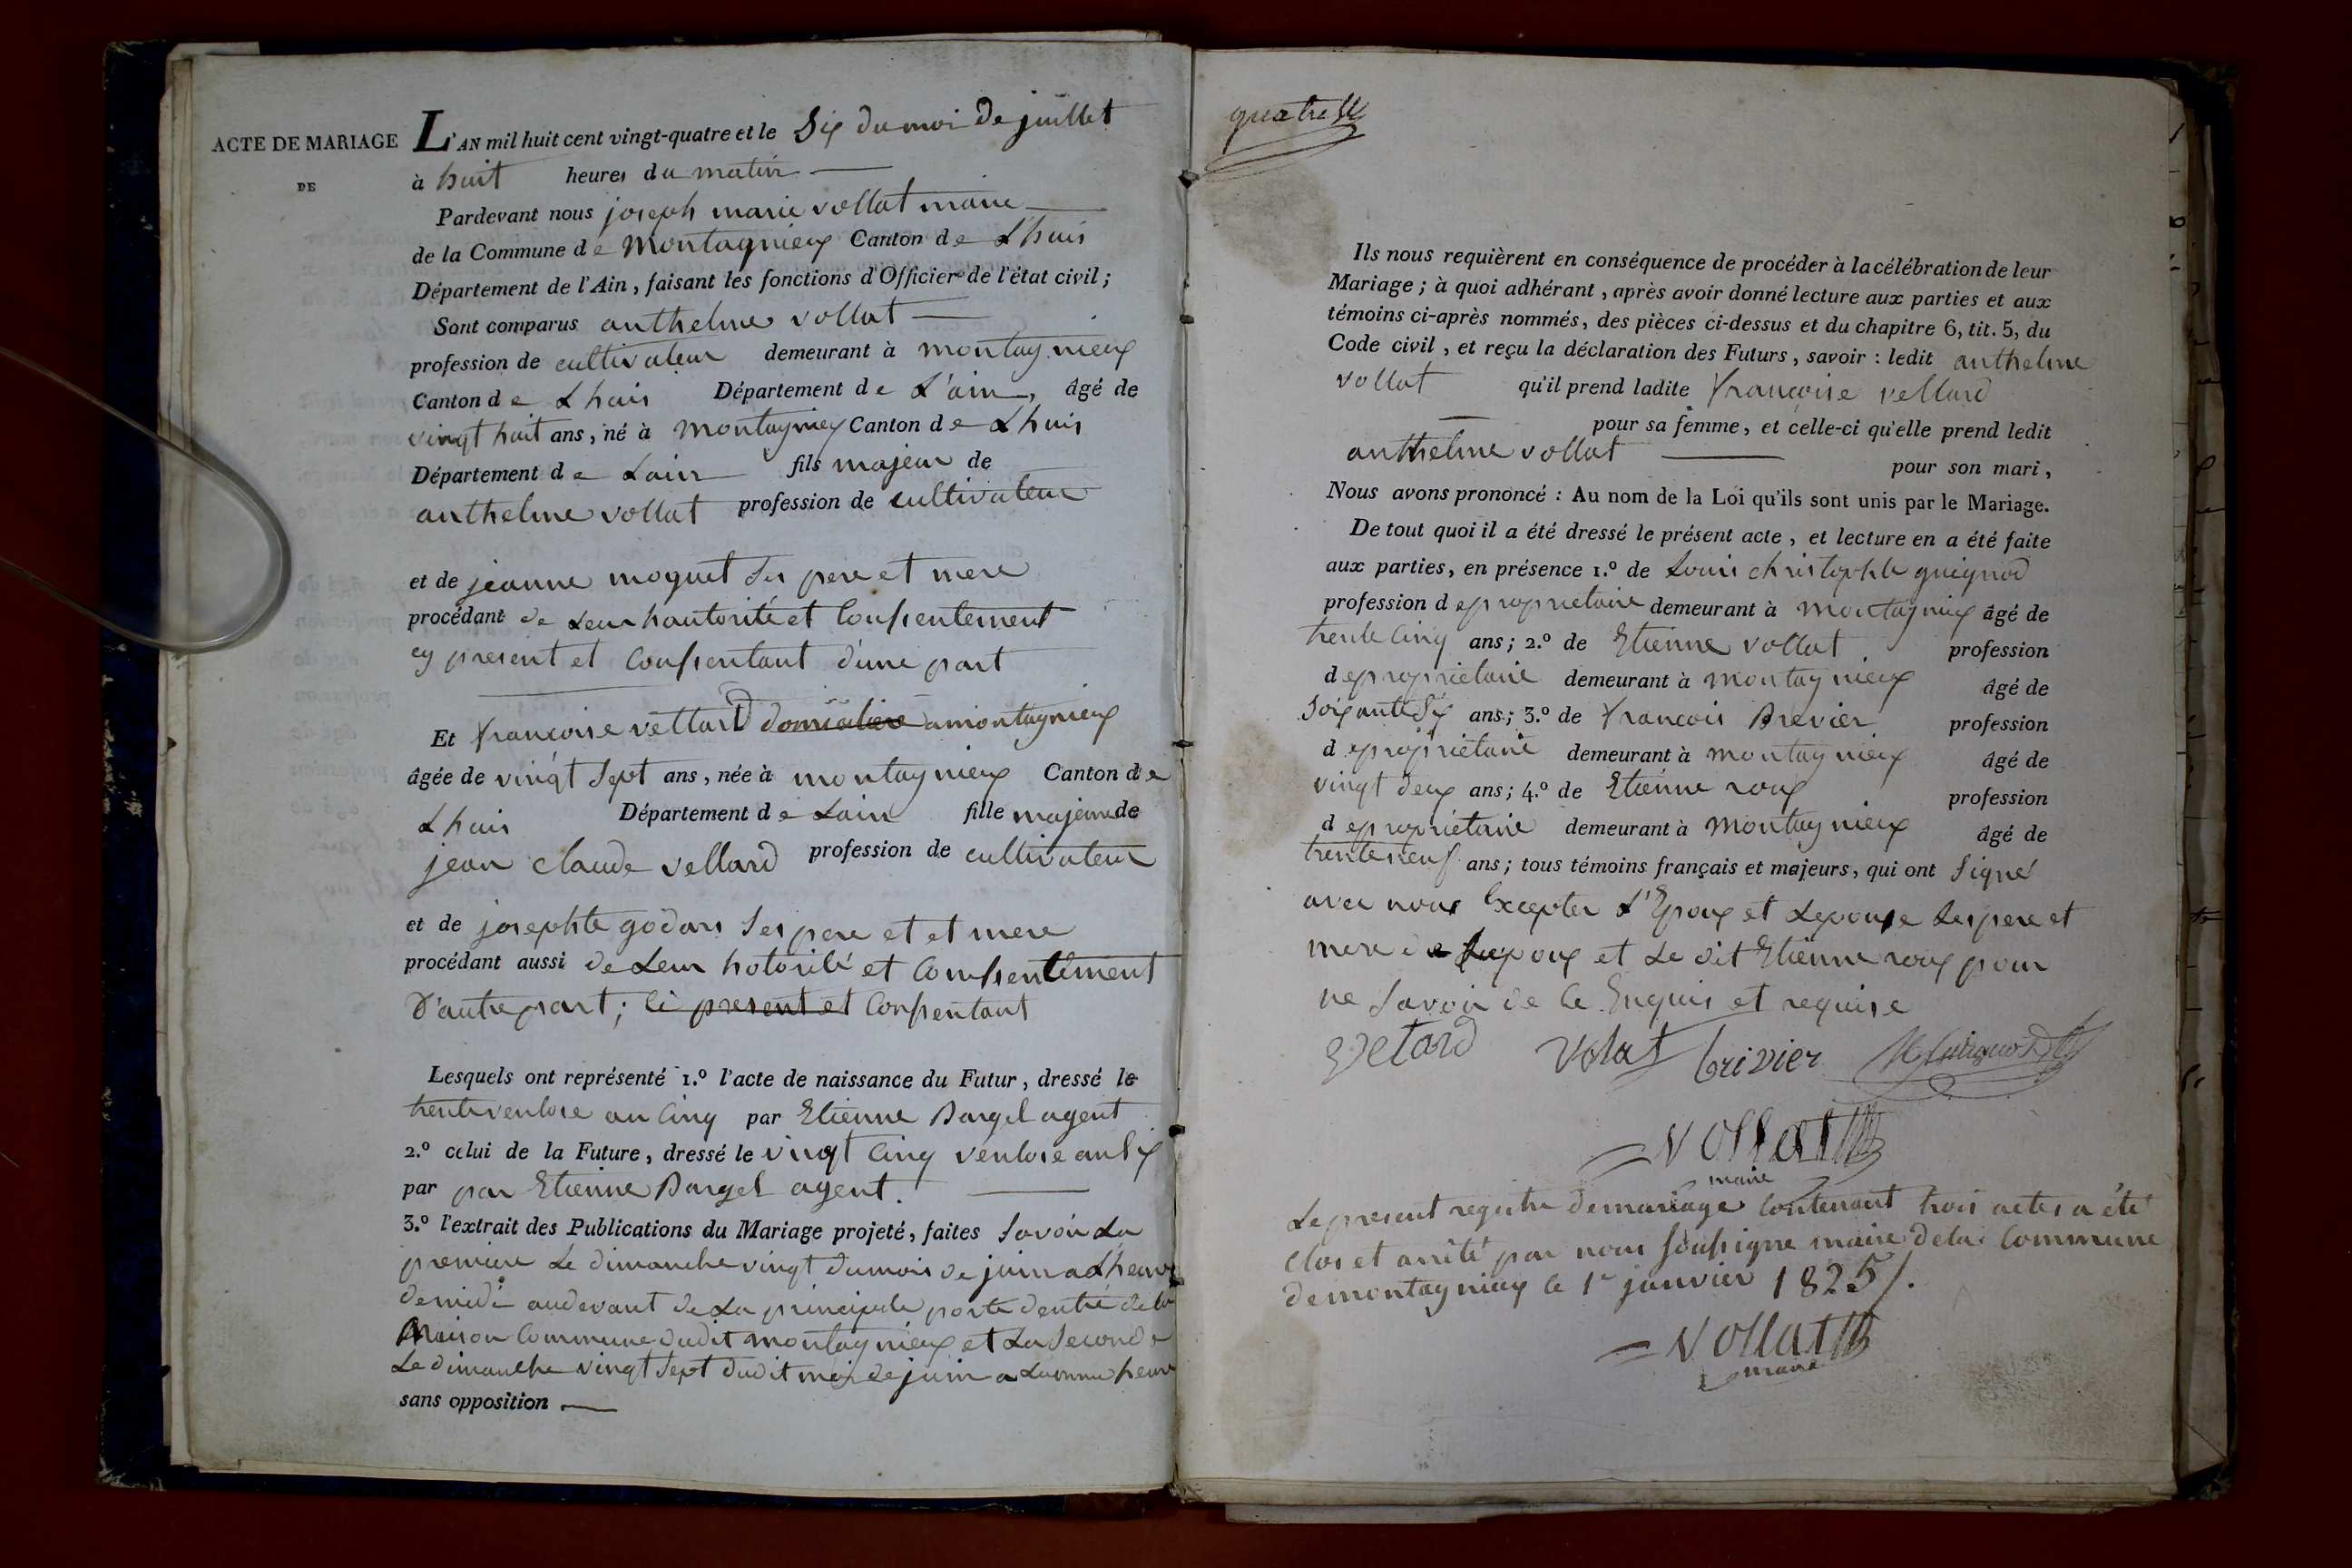 ACTE DE MARIAGE
DE
L'AN mil huit cent vingt-quatre et le Six du moi De juillet
à huit heures du matin
Pardevant nous joseph marie vollat maire
de la Commune de montagnieux Canton de Lhuis
Département de l'Ain, faisant les fonctions d'Officier de l'état civil;
Sont comparus anthelme vollat
profession de cultivateur demeurant à montagnieux
Canton de Lhuis Département de L'ain, âgé de
vingt huit ans, né à montagnieux Canton de Lhuis
Département de Lain fils majeur de
anthelme vollat profession de cultivateur
et de jeanne moquet Ses pere et mere
procédant de Leur hautorité et Consentement
cy present et Consentant d'une part
Et françoise vettard domiciliere a montagnieux
âgée de vingt Sept ans, née à montagnieux Canton de
Lhuis Département de Lain fille majeure de
jean claude vellard profession de cultivateur
et de josephte godars Ses pere et et mere
procédant aussi de Leur hotorité et Consentement
D'autre part; Ci present et Consentant
Lesquels ont représenté 1.º l'acte de naissance du Futur, dressé le
trente ventose an Cinq par Etienne Bargel agent
2.º celui de la Future, dressé le vingt Cinq ventose an Six
par par Etienne Bargel agent.
3.º l'extrait des Publications du Mariage projeté, faites Savoir La
premiere Le dimanche vingt du mois de juin a Lheure
de midi audevant de La principale porte dentré de la
Maison Commune dudit montagnieux et La Seconde
Le dimanche vingt Sept dudit moi de juin a Laumme heure
sans opposition
quatre
Ils nous requièrent en conséquence de procéder à la célébration de leur
Mariage; à quoi adhérant, après avoir donné lecture aux parties et aux
témoins ci-après nommés, des pièces ci-dessus et du chapitre 6, tit. 5, du
Code civil, et reçu la déclaration des Futurs, savoir: ledit anthelme
vollat qu'il prend ladite françoise vellard
pour sa femme, et celle-ci qu'elle prend ledit
anthelme vollat pour son mari,
Nous avons prononcé: Au nom de la Loi qu'ils sont unis par le Mariage.
De tout quoi il a été dressé le présent acte, et lecture en a été faite
aux parties, en présence 1.º de Louis christophle guignod
profession de proprietaire demeurant à montagnieux âgé de
trente Cinq ans; 2.º de Etienne vollat profession
de proprietaire demeurant à montagnieux âgé de
Soixante Six ans; 3.º de françois Brevier profession
de proprietaire demeurant à montagnieux âgé de
vingt deux ans; 4.º de Etienne roux profession
de proprietaire demeurant à montagnieux âgé de
trente neuf ans; tous témoins français et majeurs, qui ont Signé
avec nous Excepter L'Epoux et Lepouse Les pere et
mere de Lepoux et Le dit Etienne roux pour
ne Savoir de Ce Enquis et requise
vetard volat brivier guignod
vollat
maire
Le present registre de mariage Contenant trois actes a été
Clos et arrêté par nous Soussigne maire de la Commune
de montagnieux le 1r janvier 1825/.
vollat
maire